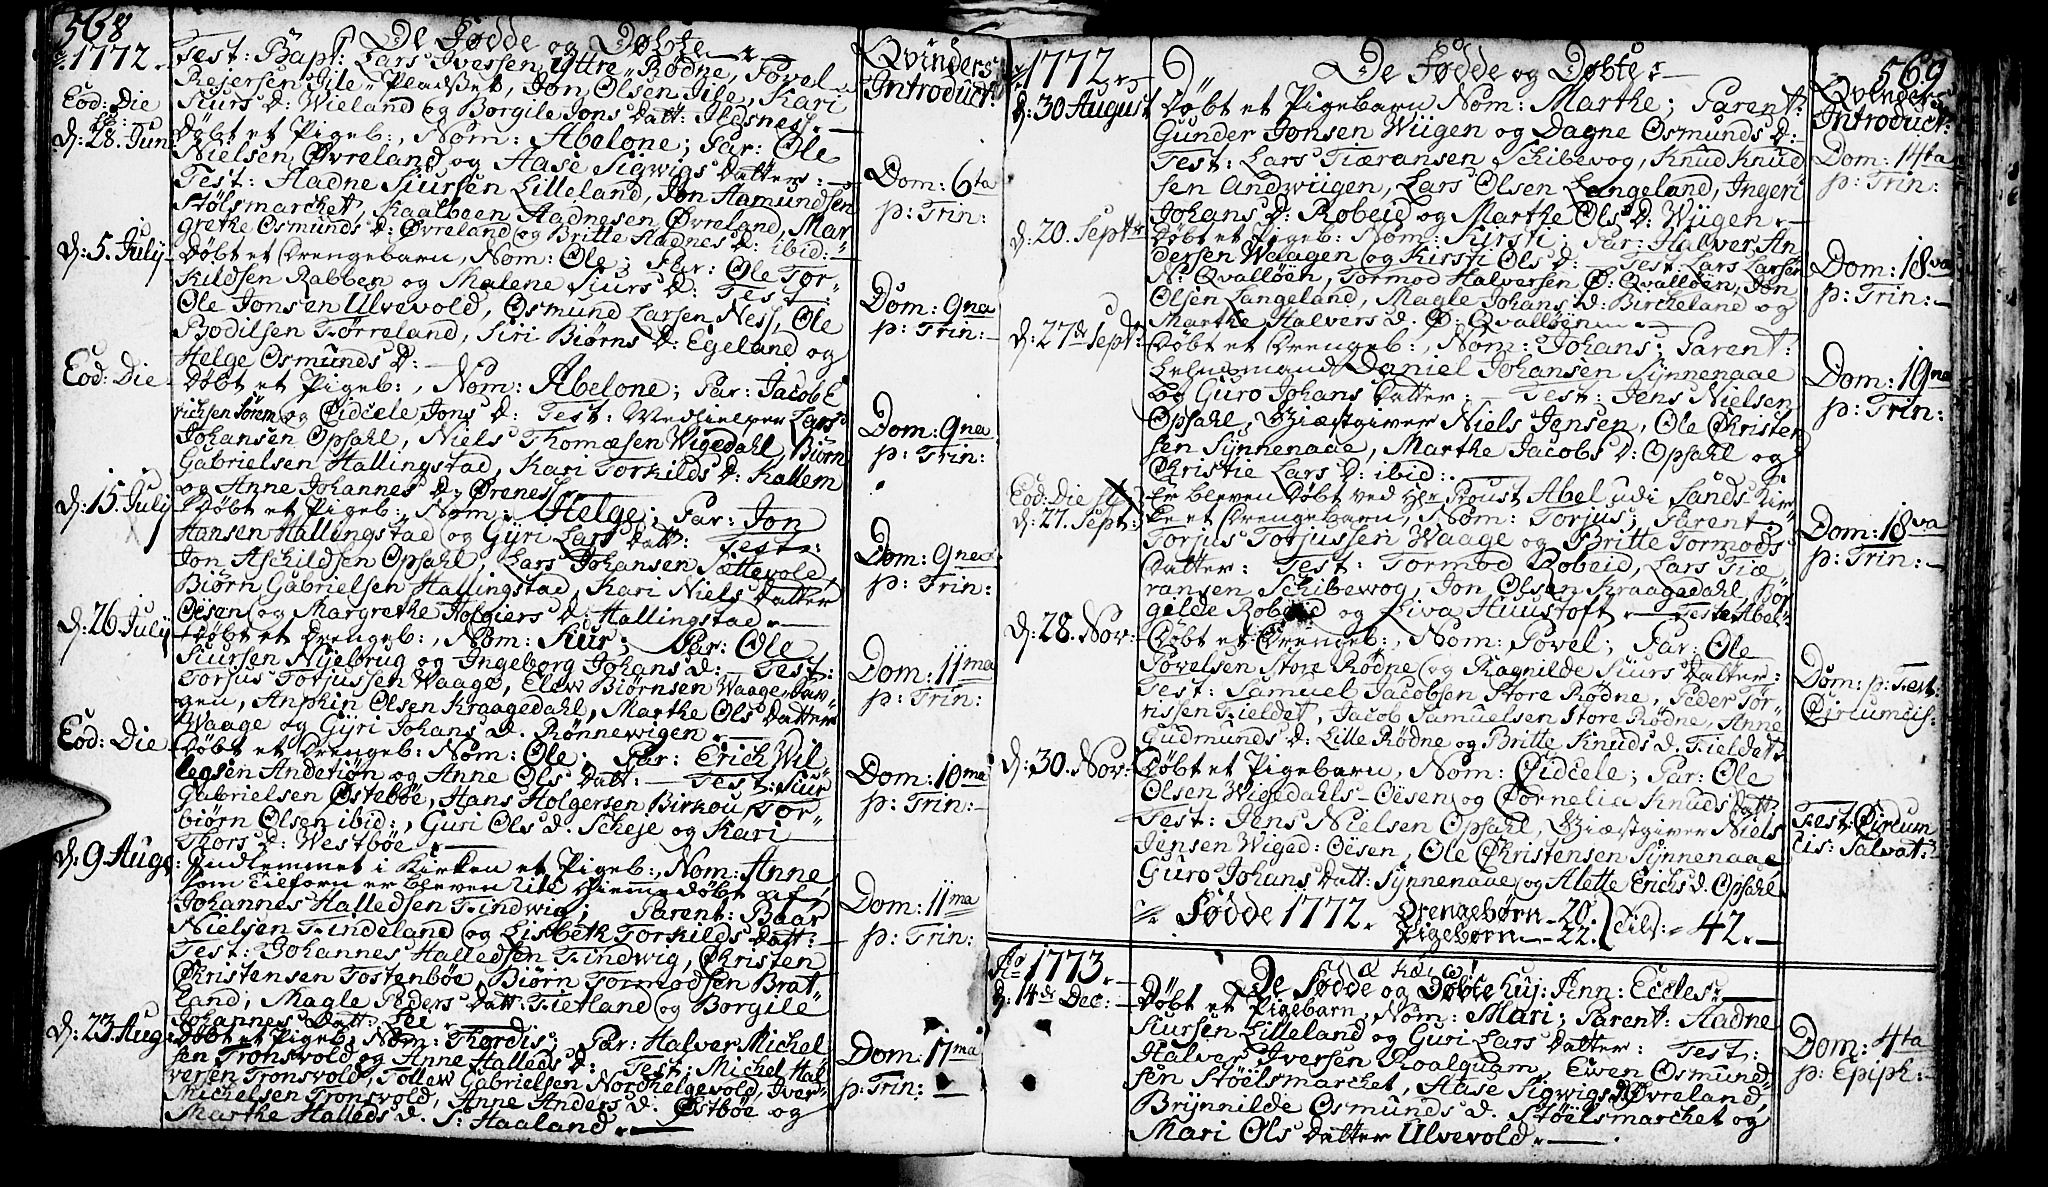 568
1772.
De Fødde og Døbte
Qvinders
Introduct:
Test: Bapt: Lars Ivessen yttre Rødne, Povel
Rejersen Jile Pladset, Jon Olsen Jile, Kari
Siurs D: Wieland og Borgile Jons Datt: Ilesness.
Eod: Die
d: 28. Jun:
Døbt et Pigeb:, Nom: Abelone; Par: Ole
Nielsen Øvreland og Aase Sigwigs Datter:
Test: Aadne Siursen Lilleland, Jon Aamundsen
Stølsmarchet, Kaalbeen Aadnesen Øvreland, Mar-
grethe Osmunds D: Øvreland og Britte Aadnes D: ibid:
Dom: 6ta
p: Trin:
d: 5. July
Døbt et Drengebarn, Nom: Ole; Par: Ole Tor-
kildsen Rabben og Malene Siurs D: Test:
Ole Jonsen Ulvevold, Osmund Larsen Ness, Ole
Bodilsen Førreland, Siri Biørns D: Egeland og
Helge Osmunds D:
Dom: 9na
p: Trin:
Eod: Die
Døbt et Pigeb:, Nom: Abelone; Par: Jacob E
richsen Sørem og Cidcele Jons D: Test: Medhielper Lars
Johansen Opsahl, Niels Thomæsen Wigedahl, Biørn
Gabrielsen Hallingstad, Kari Torkilds D: Kallem
og Anne Johannes D: Ørenes
Dom: 9na
p: Trin:
d: 15. July
Døbt et Pigeb:, Nom: Helge; Par: Jon
Hansen Hallingstad og Gyri Lars Datt: Test:
Jon Aschildsen Opsahl, Lars Johansen Sættevold
Biørn Gabrielsen Hallingstad, Kari Niels Datter
Oësen og Margrethe Holgiers D: Hallingstad
Dom: 9na
p: Trin:
d: 26 July
Døbt et Drengeb:, Nom: Siur; Par: Ole
Siursen Nyebrug og Ingeborg Johans D: Test:
Torjus Torjussen Waage, Elew Biørnsen Waage, Jør-
gen, Anphin Olsen Kraagedahl, Marthe Ols Datter
Waage og Gyri Johans D. Rønnewigen
Dom: 11ma
p: Trin:
Eod: Die
Døbt et Drengeb: Nom: Ole; Par: Erich Wil
legsen Andetiøn og Anne Ols Datt: Test: Siur
Gabrielsen Østebøe, Hans Holgersen Birkou, Tor-
biørn Olsen ibid:, Guri Ols D. Scheje og Kari
Thors D: Westbøe
Dom: 10ma
p: Trin:
d: 9. Aug:
Indlemmet i Kirken et Pigeb:, Nom: Anne
som tilforn er bleven til Hiemmedøbt af
Johannes Halledsen Findwig; Parent: Baar
Nielsen Findeland og Lisbeth Torkilds Datt:
Test: Johannes Halledsen Findwig, Christen
Christensen Tostenbøe, Biørn Tormodsen Brat-
land, Magle Peders Datt: Fietland og Borgile
Johannes Datt: Lie
Dom: 11ma
p: Trin:
d: 23. Aug:
Døbt et Pigeb: Nom: Thordis; Par: Halver Michel
sen Tronsvold og Anne Halleds D: Test: Michel Hal
versen Tronsvold, Tollew Gabrielsen Nordhelgevold, Iver
Michelsen Tronsvold, Anne Anders D. Østbøe og
Marthe Halleds D. S: Haaland.
Dom: 17ma
p: Trin:
1772
De Fødde og Døbte
569
Qvinders
Introduct:
d: 30 August
Døbt et Pigebarn Nom: Marthe; Parent:
Gunder Jonsen Wiigen og Dagne Osmunds D:
Test: Lars Tiæransen Schibevog, Knud Knud
sen Andwiigen, Lars Olsen Langeland, Ingeri
Johans D: Robeid og Marthe Ols D: Wiigen
Dom: 14ta
p: Trin:
d: 20. Septbr
Døbt et Pigeb: Nom: Kirsti; Par: Halver An
dersen Waagen og Kirsti Ols D: Test: Lars Larsen
N: Qvalløen, Tormod Halversen Ø: Qvalløen, Jon
Olsen Langeland, Magle Johans D: Bircheland og
Marthe Halvers D. Ø: Qvalløen
Dom: 18va
p: Trin:
d: 27de Sept:
Døbt et Drengeb:, Nom: Johans; Parent:
Lehnsmand Daniel Johansen Synnenaae
og Guro Johans Datter: Test: Jens Nielsen
Opsahl, Giæstgiver Niels Jensen, Ole Christen
sen Synnenaae, Marthe Jacobs D: Opsahl og
Christie Lars D: ibid:
Dom: 19na
p: Trin:
Eod: Die
d: 27. Sept:
Er bleven Døbt ved Hr Proust Abel udi Sands Kir-
ke et Drengebarn, Nom: Torjus; Parent:
Torjus Torjussen Waage og Britte Tormods
Datter: Test: Tormod Robeid, Lars Tiæ
ransen Schibewog, Jon Olsen Kraagedahl, Bor
gilde Robeid og Liva Huustoft Teste Abel:
Dom: 18va
p: Trin:
d: 28. Nov:
Døbt et Drengeb:, Nom: Povel; Par: Ole
Povelsen Store Rødne og Ragnilde Siurs Datter:
Test: Samuel Jacobsen Store Rødne, Peder Tør-
rissen Fieldet, Jacob Samuelsen Store Rødne, Anne
Gudmunds D: Lille Rødne og Britte Knuds D. Fieldet
Dom: p: Fest:
Circumcis:
d: 30. Nov:
Døbt et Pigebarn, Nom: Cidcele; Par: Ole
Olsen Wigedahls-Oësen og Cornelia Knuds Datt
Test: Jens Nielsen Opsahl, Giæstgiver Niels
Jensen Wiged: Oësen, Ole Christensen Synnenaae
Guro Johans Datt: Synnenaae og Alette Erichs D. Opsahl
Fest: Circum
cis: Salvat:
Fødde 1772. Drengebørn 20.
Pigebørn 22. Tils: 42.
Ao 1773.
De Fødde og Døbte huj: Ann: Eccles:
d: 14de Dec:
Døbt et Pigebarn, Nom: Mari; Parent: Aadne
Siursen Lilleland og Guri Lars Datter: Test:
Halver Iversen Roalquam, Ewen Osmund
sen Støelsmarchet, Aase Sigwigs D Øvreland
Brynnilde Osmunds D. Støelsmarchet og
Mari Ols Datter Ulvevold.
Dom: 4ta
p: Epiph: